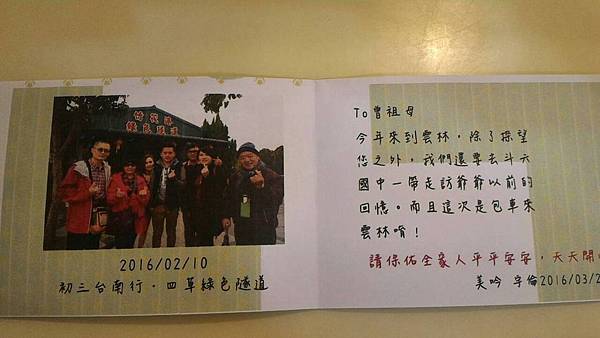 竹筏港
綠色隧道
2016/02/10
初三台南行．四草綠色隧道
To曾祖母
今年來到雲林，除了探望
您之外，我們還要去斗六
國中一帶走訪爺爺以前的
回憶。而且這次是包車來
雲林唷！
請保佑全家人平平安安，天天開
美吟 宇倫2016/03/2